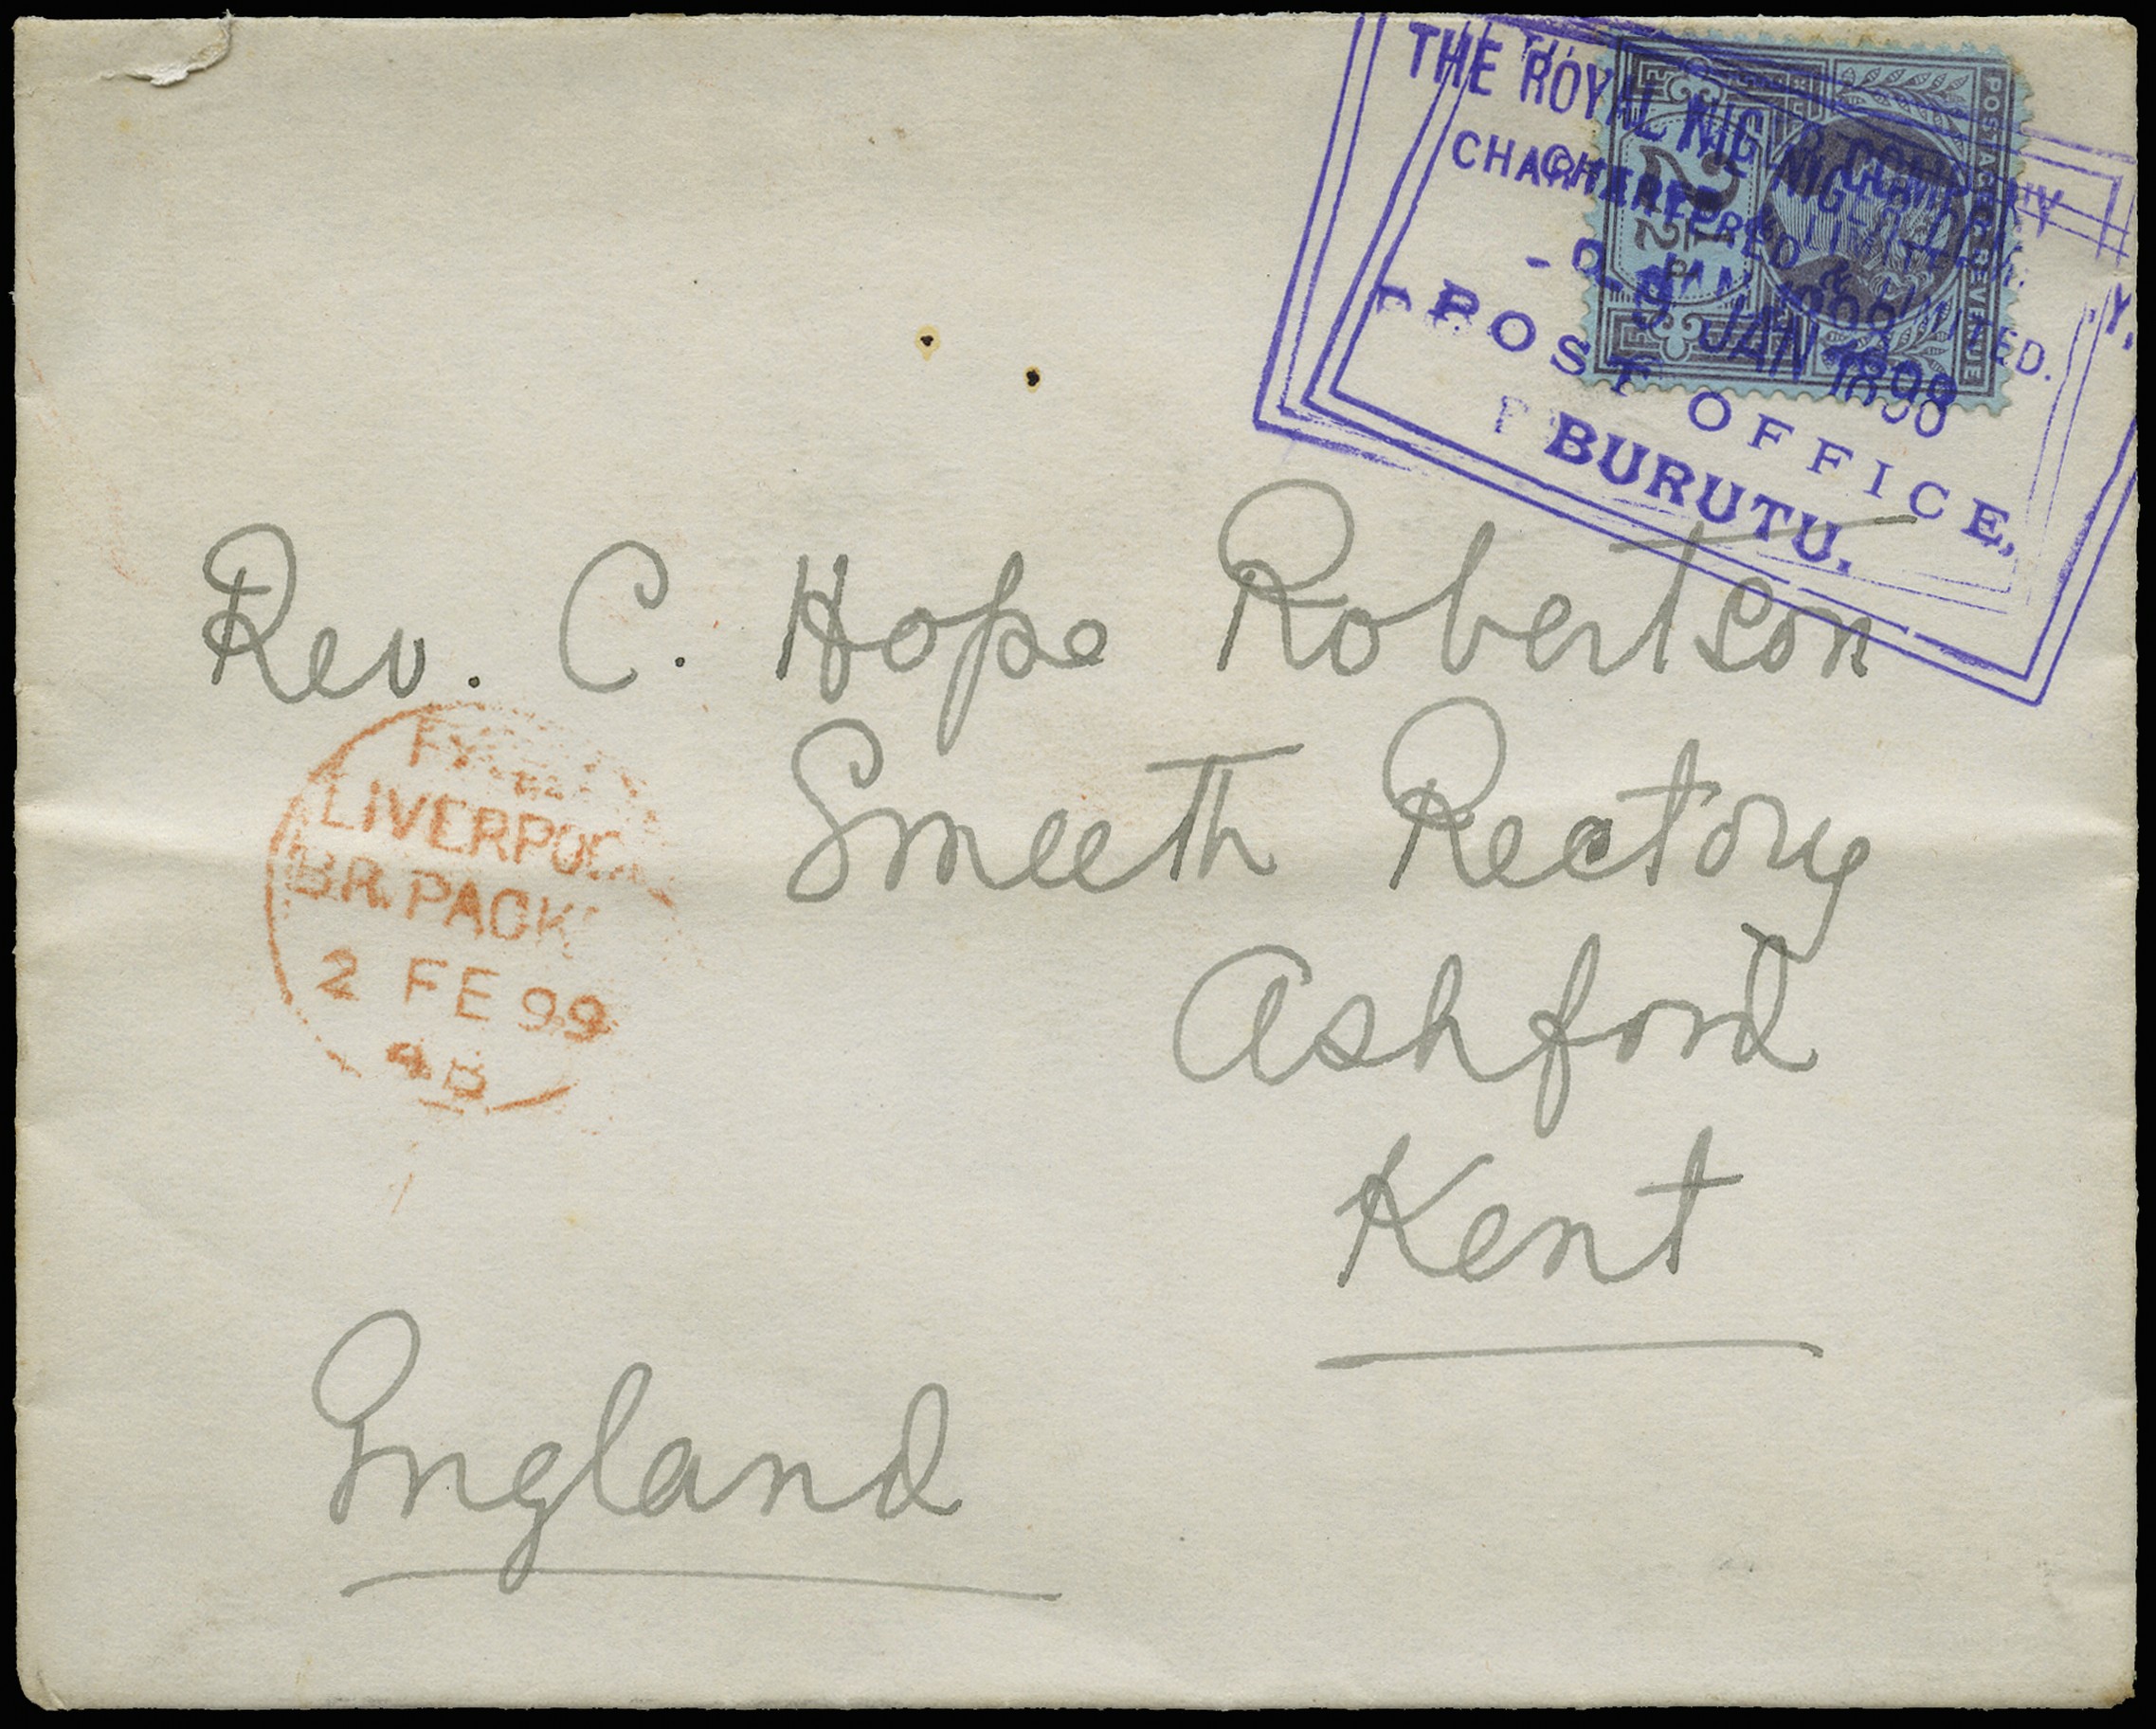 THE ROYAL NIGER COMPANY
CHARTERED & LIMITED.
-9 JAN 1899
POST OFFICE,
BURUTU.
POSTAGE & REVENUE
2½
Rev. C. Hope Robertson
Smeeth Rectory
Ashford
Kent
England
LIVERPOOL
BR. PACKT
2 FE 99
4B